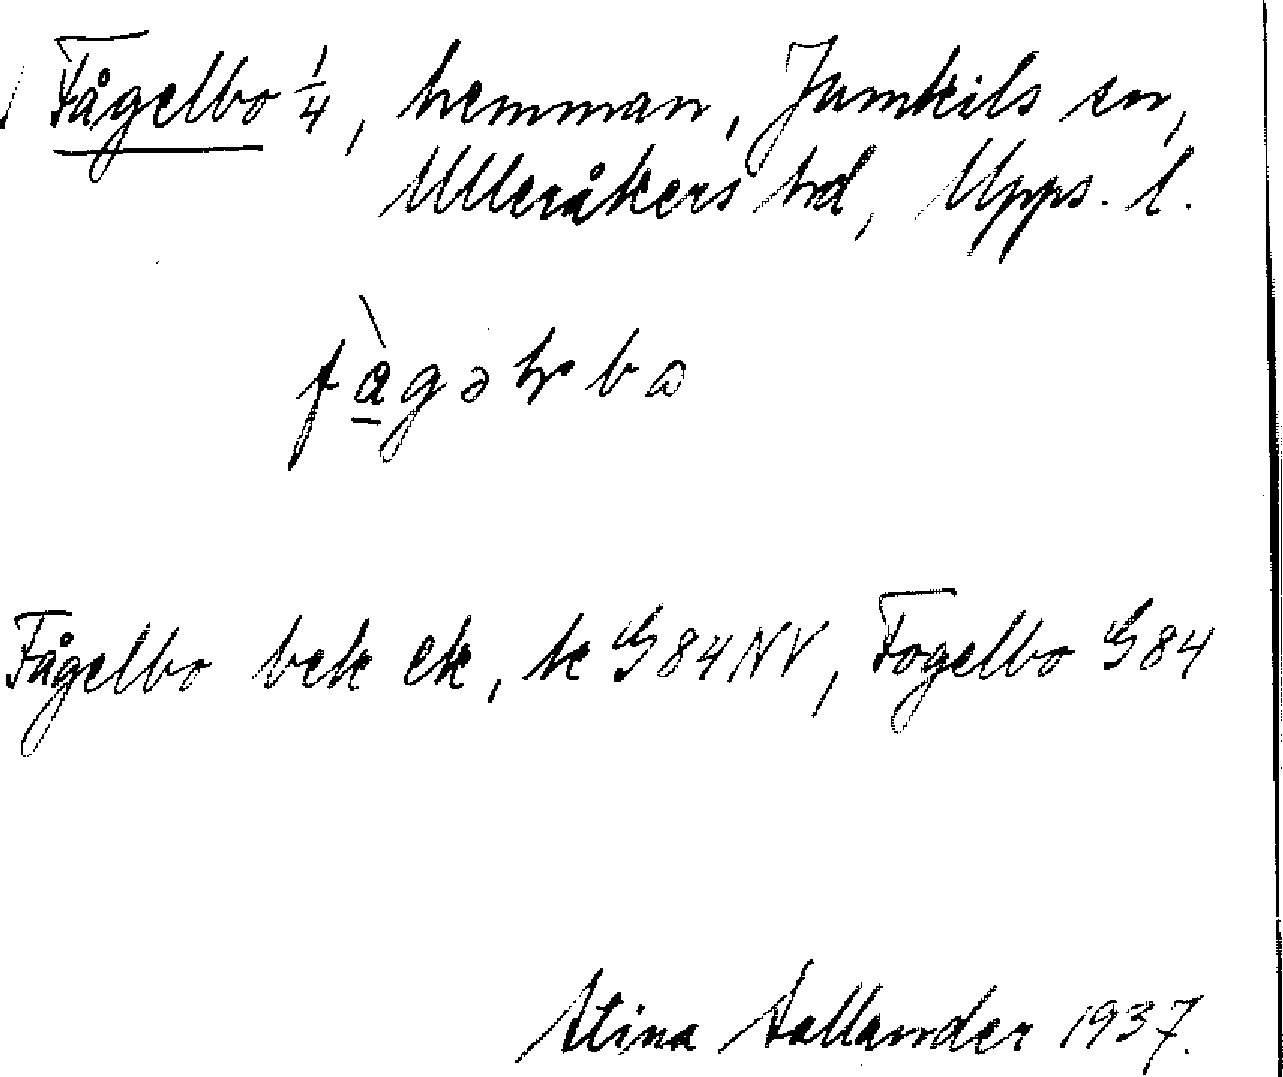 Fågelbo 1/4, hemman, Jumkils sn,
Ulleråkers hd, Upps. l.
Fågelbo bek ek, k G84NV, Fogelbo G84
Stina Sallander 1937.